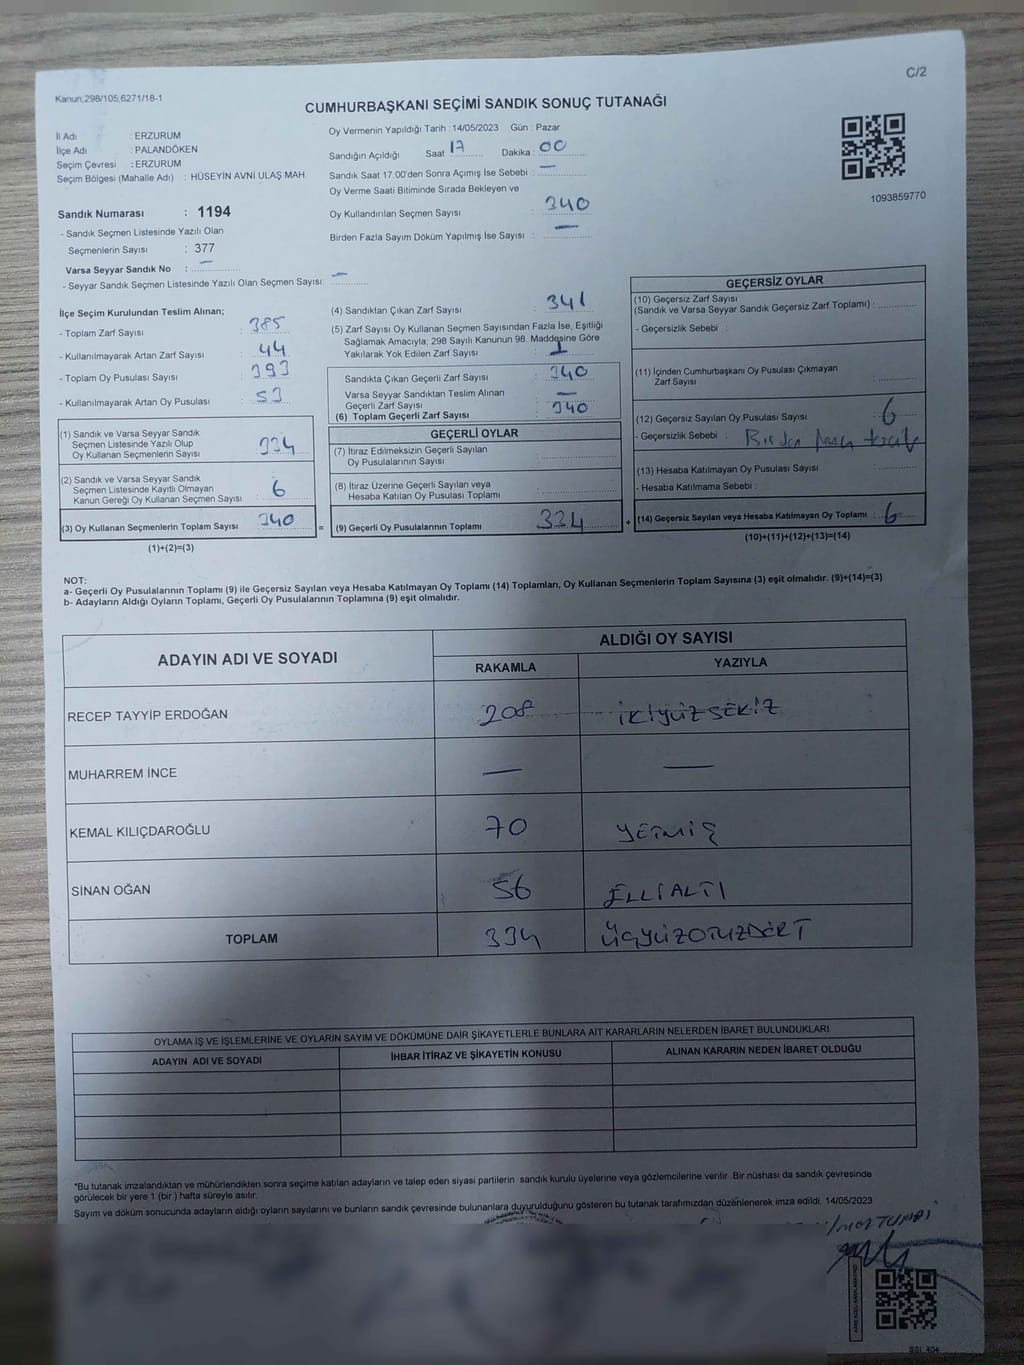 C/2
Kanun:298/105;6271/18-1
CUMHURBAŞKANI SEÇİMİ SANDIK SONUÇ TUTANAĞI
İl Adı : ERZURUM
İlçe Adı : PALANDÖKEN
Seçim Çevresi : ERZURUM
Seçim Bölgesi (Mahalle Adı) : HÜSEYİN AVNİ ULAŞ MAH.
Sandık Numarası : 1194
- Sandık Seçmen Listesinde Yazılı Olan
Seçmenlerin Sayısı : 377
Varsa Seyyar Sandık No : —
- Seyyar Sandık Seçmen Listesinde Yazılı Olan Seçmen Sayısı: —
Oy Vermenin Yapıldığı Tarih : 14/05/2023 Gün : Pazar
Sandığın Açıldığı Saat 17 Dakika : 00
Sandık Saat 17:00'den Sonra Açımış İse Sebebi : —
Oy Verme Saati Bitiminde Sırada Bekleyen ve
Oy Kullandırılan Seçmen Sayısı : 340
Birden Fazla Sayım Döküm Yapılmış İse Sayısı : —
1093859770
İlçe Seçim Kurulundan Teslim Alınan;
- Toplam Zarf Sayısı : 385
- Kullanılmayarak Artan Zarf Sayısı : 44
- Toplam Oy Pusulası Sayısı : 393
- Kullanılmayarak Artan Oy Pusulası : 53
(1) Sandık ve Varsa Seyyar Sandık
Seçmen Listesinde Yazılı Olup
Oy Kullanan Seçmenlerin Sayısı : 334
(2) Sandık ve Varsa Seyyar Sandık
Seçmen Listesinde Kayıtlı Olmayan
Kanun Gereği Oy Kullanan Seçmen Sayısı : 6
(3) Oy Kullanan Seçmenlerin Toplam Sayısı : 340
(1)+(2)=(3)
(4) Sandıktan Çıkan Zarf Sayısı : 341
(5) Zarf Sayısı Oy Kullanan Seçmen Sayısından Fazla İse, Eşitliği
Sağlamak Amacıyla; 298 Sayılı Kanunun 98. Maddesine Göre
Yakılarak Yok Edilen Zarf Sayısı : 1
Sandıkta Çıkan Geçerli Zarf Sayısı : 340
Varsa Seyyar Sandıktan Teslim Alınan
Geçerli Zarf Sayısı : —
(6) Toplam Geçerli Zarf Sayısı : 340
GEÇERLİ OYLAR
(7) İtiraz Edilmeksizin Geçerli Sayılan
Oy Pusulalarının Sayısı :
(8) İtiraz Üzerine Geçerli Sayılan veya
Hesaba Katılan Oy Pusulası Toplamı :
= (9) Geçerli Oy Pusulalarının Toplamı : 334
GEÇERSİZ OYLAR
(10) Geçersiz Zarf Sayısı
(Sandık ve Varsa Seyyar Sandık Geçersiz Zarf Toplamı) :
- Geçersizlik Sebebi :
(11) İçinden Cumhurbaşkanı Oy Pusulası Çıkmayan
Zarf Sayısı :
(12) Geçersiz Sayılan Oy Pusulası Sayısı : 6
- Geçersizlik Sebebi : Birden fazla tercih
(13) Hesaba Katılmayan Oy Pusulası Sayısı :
- Hesaba Katılmama Sebebi :
+ (14) Geçersiz Sayılan veya Hesaba Katılmayan Oy Toplamı : 6
(10)+(11)+(12)+(13)=(14)
NOT:
a- Geçerli Oy Pusulalarının Toplamı (9) ile Geçersiz Sayılan veya Hesaba Katılmayan Oy Toplamı (14) Toplamları, Oy Kullanan Seçmenlerin Toplam Sayısına (3) eşit olmalıdır. (9)+(14)=(3)
b- Adayların Aldığı Oyların Toplamı, Geçerli Oy Pusulalarının Toplamına (9) eşit olmalıdır.
ADAYIN ADI VE SOYADI ALDIĞI OY SAYISI
RAKAMLA YAZIYLA
RECEP TAYYİP ERDOĞAN 208 İKİYÜZSEKİZ
MUHARREM İNCE — —
KEMAL KILIÇDAROĞLU 70 YETMİŞ
SİNAN OĞAN 56 ELLİALTI
TOPLAM 334 ÜÇYÜZOTUZDÖRT
OYLAMA İŞ VE İŞLEMLERİNE VE OYLARIN SAYIM VE DÖKÜMÜNE DAİR ŞİKAYETLERLE BUNLARA AİT KARARLARIN NELERDEN İBARET BULUNDUKLARI
ADAYIN ADI VE SOYADI İHBAR İTİRAZ VE ŞİKAYETİN KONUSU ALINAN KARARIN NEDEN İBARET OLDUĞU
*Bu tutanak imzalandıktan ve mühürlendikten sonra seçime katılan adayların ve talep eden siyasi partilerin sandık kurulu üyelerine veya gözlemcilerine verilir. Bir nüshası da sandık çevresinde
görülecek bir yere 1 (bir ) hafta süreyle asılır.
Sayım ve döküm sonucunda adayların aldığı oyların sayılarını ve bunların sandık çevresinde bulunanlara duyurulduğunu gösteren bu tutanak tarafımızdan düzenlenerek imza edildi. 14/05/2023